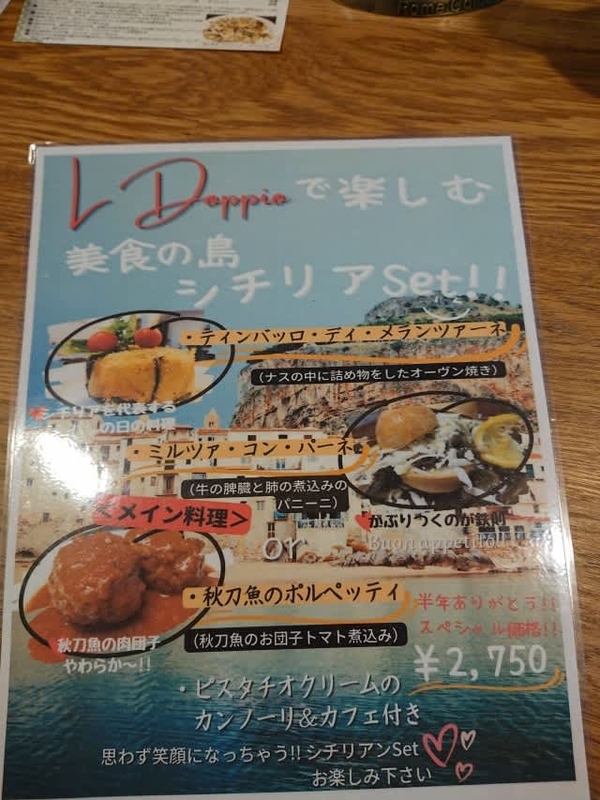 L Doppioで楽しむ
美食の島
シチリアSet!!
・ティンバッロ・ディ・メランツァーネ
(ナスの中に詰め物をしたオーヴン焼き)
シチリアを代表する
の日の料理
・ミルツァ・コン・パーネ
(牛の脾臓と肺の煮込みの
パニーニ)
かぶりつくのが鉄則
Buon appetito!!
<メイン料理>
or
・秋刀魚のポルペッティ
(秋刀魚のお団子トマト煮込み)
秋刀魚の肉団子
やわらか〜!!
半年ありがとう!!
スペシャル価格!!
¥2,750
・ピスタチオクリームの
カンノーリ&カフェ付き
思わず笑顔になっちゃう!!シチリアンSet
お楽しみ下さい